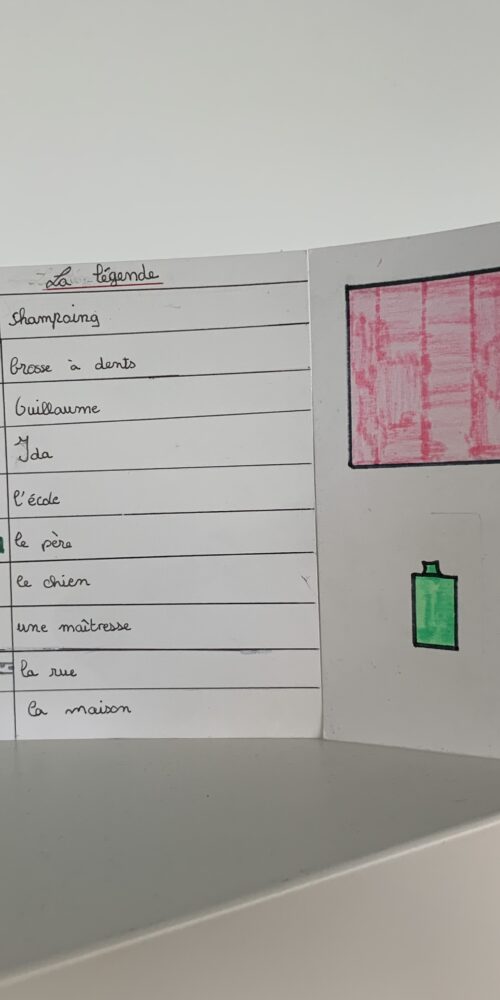 La légende
shampoing
brosse à dents
Guillaume
Ida
l'école
le père
le chien
une maîtresse
la rue
la maison